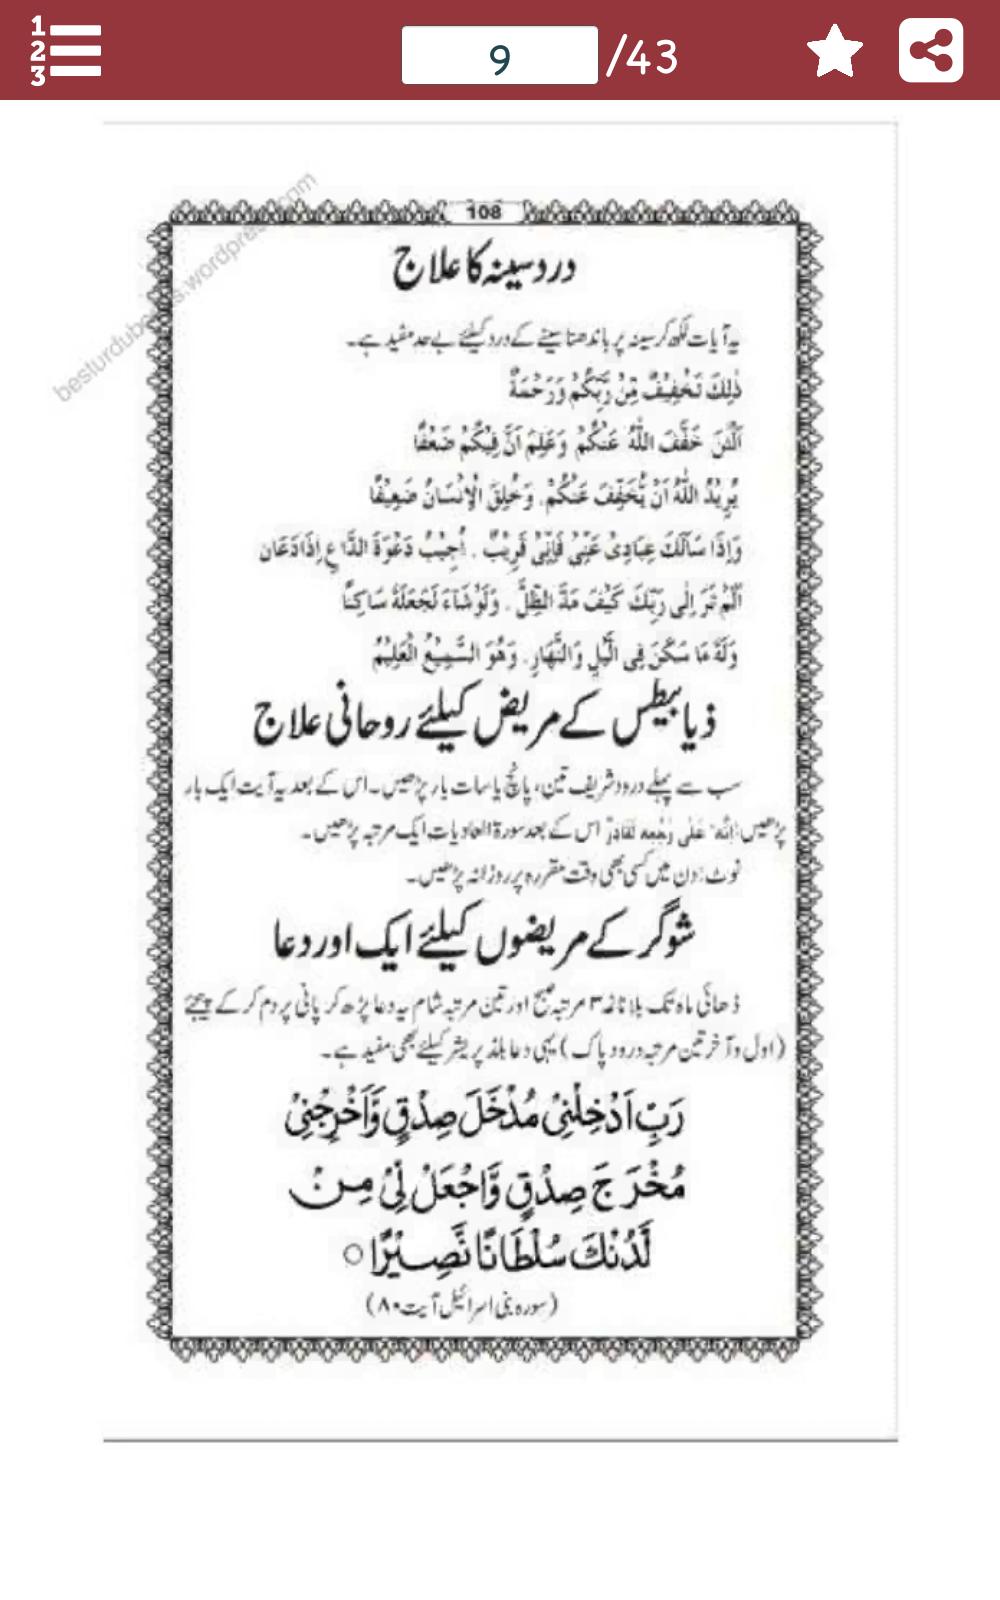 1
2
3
9 /43
besturdubooks.wordpress.com
108
درد سینہ کا علاج
یہ آیات لکھ کر سینہ پر باندھنا سینے کے درد کیلئے بے حد مفید ہے۔
ذٰلِكَ تَخْفِيْفٌ مِّنْ رَّبِّكُمْ وَرَحْمَةٌ
اَلْئٰنَ خَفَّفَ اللّٰهُ عَنْكُمْ وَعَلِمَ اَنَّ فِيْكُمْ ضَعْفًا
يُرِيْدُ اللّٰهُ اَنْ يُّخَفِّفَ عَنْكُمْ. وَخُلِقَ الْاِنْسَانُ ضَعِيْفًا
وَاِذَا سَاَلَكَ عِبَادِىْ عَنِّىْ فَاِنِّىْ قَرِيْبٌ . اُجِيْبُ دَعْوَةَ الدَّاعِ اِذَا دَعَانِ
اَلَمْ تَرَ اِلٰى رَبِّكَ كَيْفَ مَدَّ الظِّلَّ . وَلَوْ شَآءَ لَجَعَلَهٗ سَاكِنًا
وَلَهٗ مَا سَكَنَ فِى الَّيْلِ وَالنَّهَارِ. وَهُوَ السَّمِيْعُ الْعَلِيْمُ
ذیابیطس کے مریض کیلئے روحانی علاج
سب سے پہلے درود شریف تین، پانچ یا سات بار پڑھیں۔ اس کے بعد یہ آیت ایک بار
پڑھیں: اِنَّهٗ عَلٰی رَجْعِهٖ لَقَادِرٌ اس کے بعد سورۃ العادیات ایک مرتبہ پڑھیں۔
نوٹ: دن میں کسی بھی وقت مقررہ پر روزانہ پڑھیں۔
شوگر کے مریضوں کیلئے ایک اور دعا
ڈھائی ماہ تک بلا ناغہ ۳ مرتبہ صبح اور تین مرتبہ شام یہ دعا پڑھ کر پانی پر دم کر کے پیجئے
(اول و آخر تین مرتبہ درود پاک) یہی دعا بلڈ پریشر کیلئے بھی مفید ہے۔
رَبِّ اَدْخِلْنِیْ مُدْخَلَ صِدْقٍ وَّاَخْرِجْنِیْ
مُخْرَجَ صِدْقٍ وَّاجْعَلْ لِّیْ مِنْ
لَّدُنْكَ سُلْطَانًا نَّصِيْرًا ○
(سورہ بنی اسرائیل آیت ۸۰)